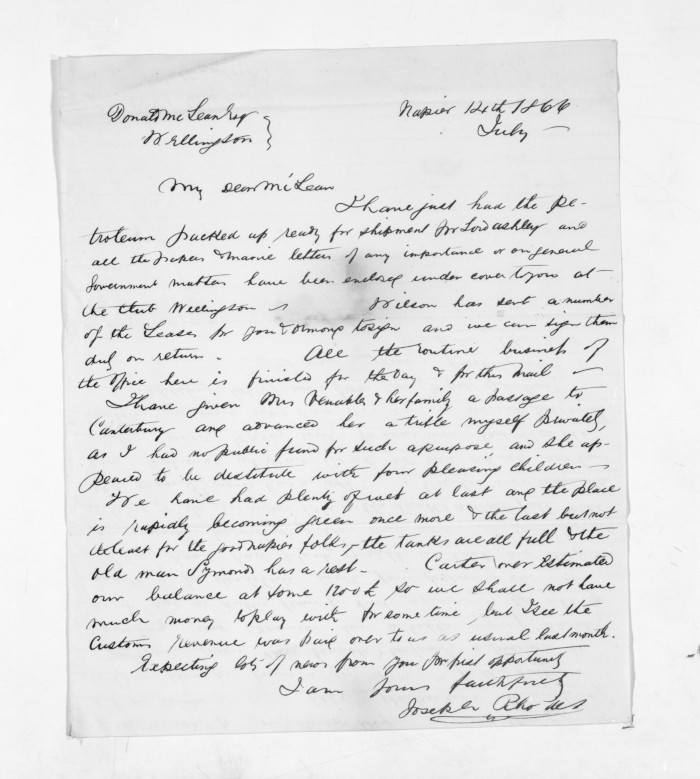 Donald McLean Esq
Wellington
Napier 14th 1866
July
My dear McLean
I have just had the Pe-
troleum packed up ready for shipment per Lord Ashley and
all the papers & maorie letters of any importance or on general
Government matters have been enclosed under cover to you at
the Club Wellington Wilson has sent a number
of the Leases for you & Ormond to sign and we can sign them
duly on return. All the routine business of
the office here is finished for the day & for this mail
I have given Mrs Venables & her family a passage to
Canterbury and advanced her a trifle myself privately,
as I had no public fund for such a purpose, and she ap-
peared to be destitute with four pleasing children
We have had plenty of wet at last and the place
is rapidly becoming green once more & the last but not
the least for the good napier folks, the tanks are all full & the
old man Symonds has a rest. Carter over Estimated
our balance at some 1200£ so we shall not have
much money to play with for some time, but I see the
Customs revenue was paid over to us as usual last month.
Expecting lots of news from you per first opportunity
I am yours faithfully
Joseph Rhodes